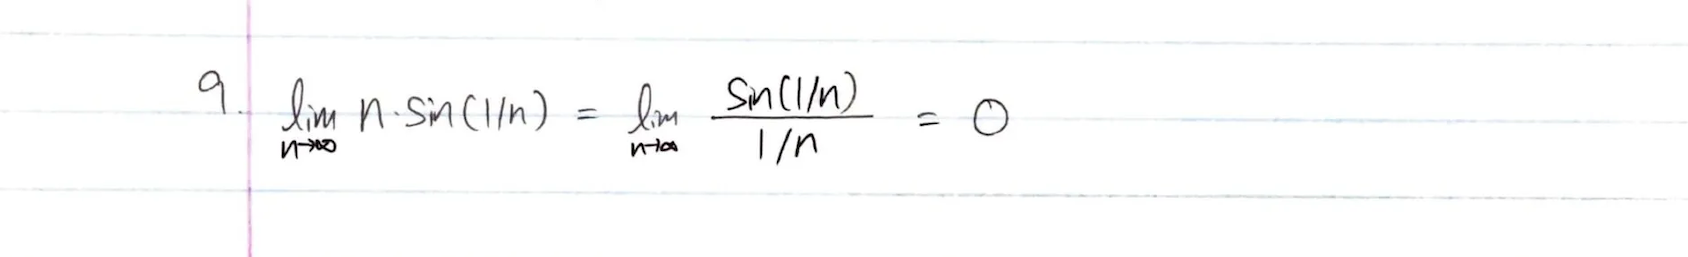 9. lim n→∞ n·sin(1/n) = lim n→∞ sin(1/n) / 1/n = 0